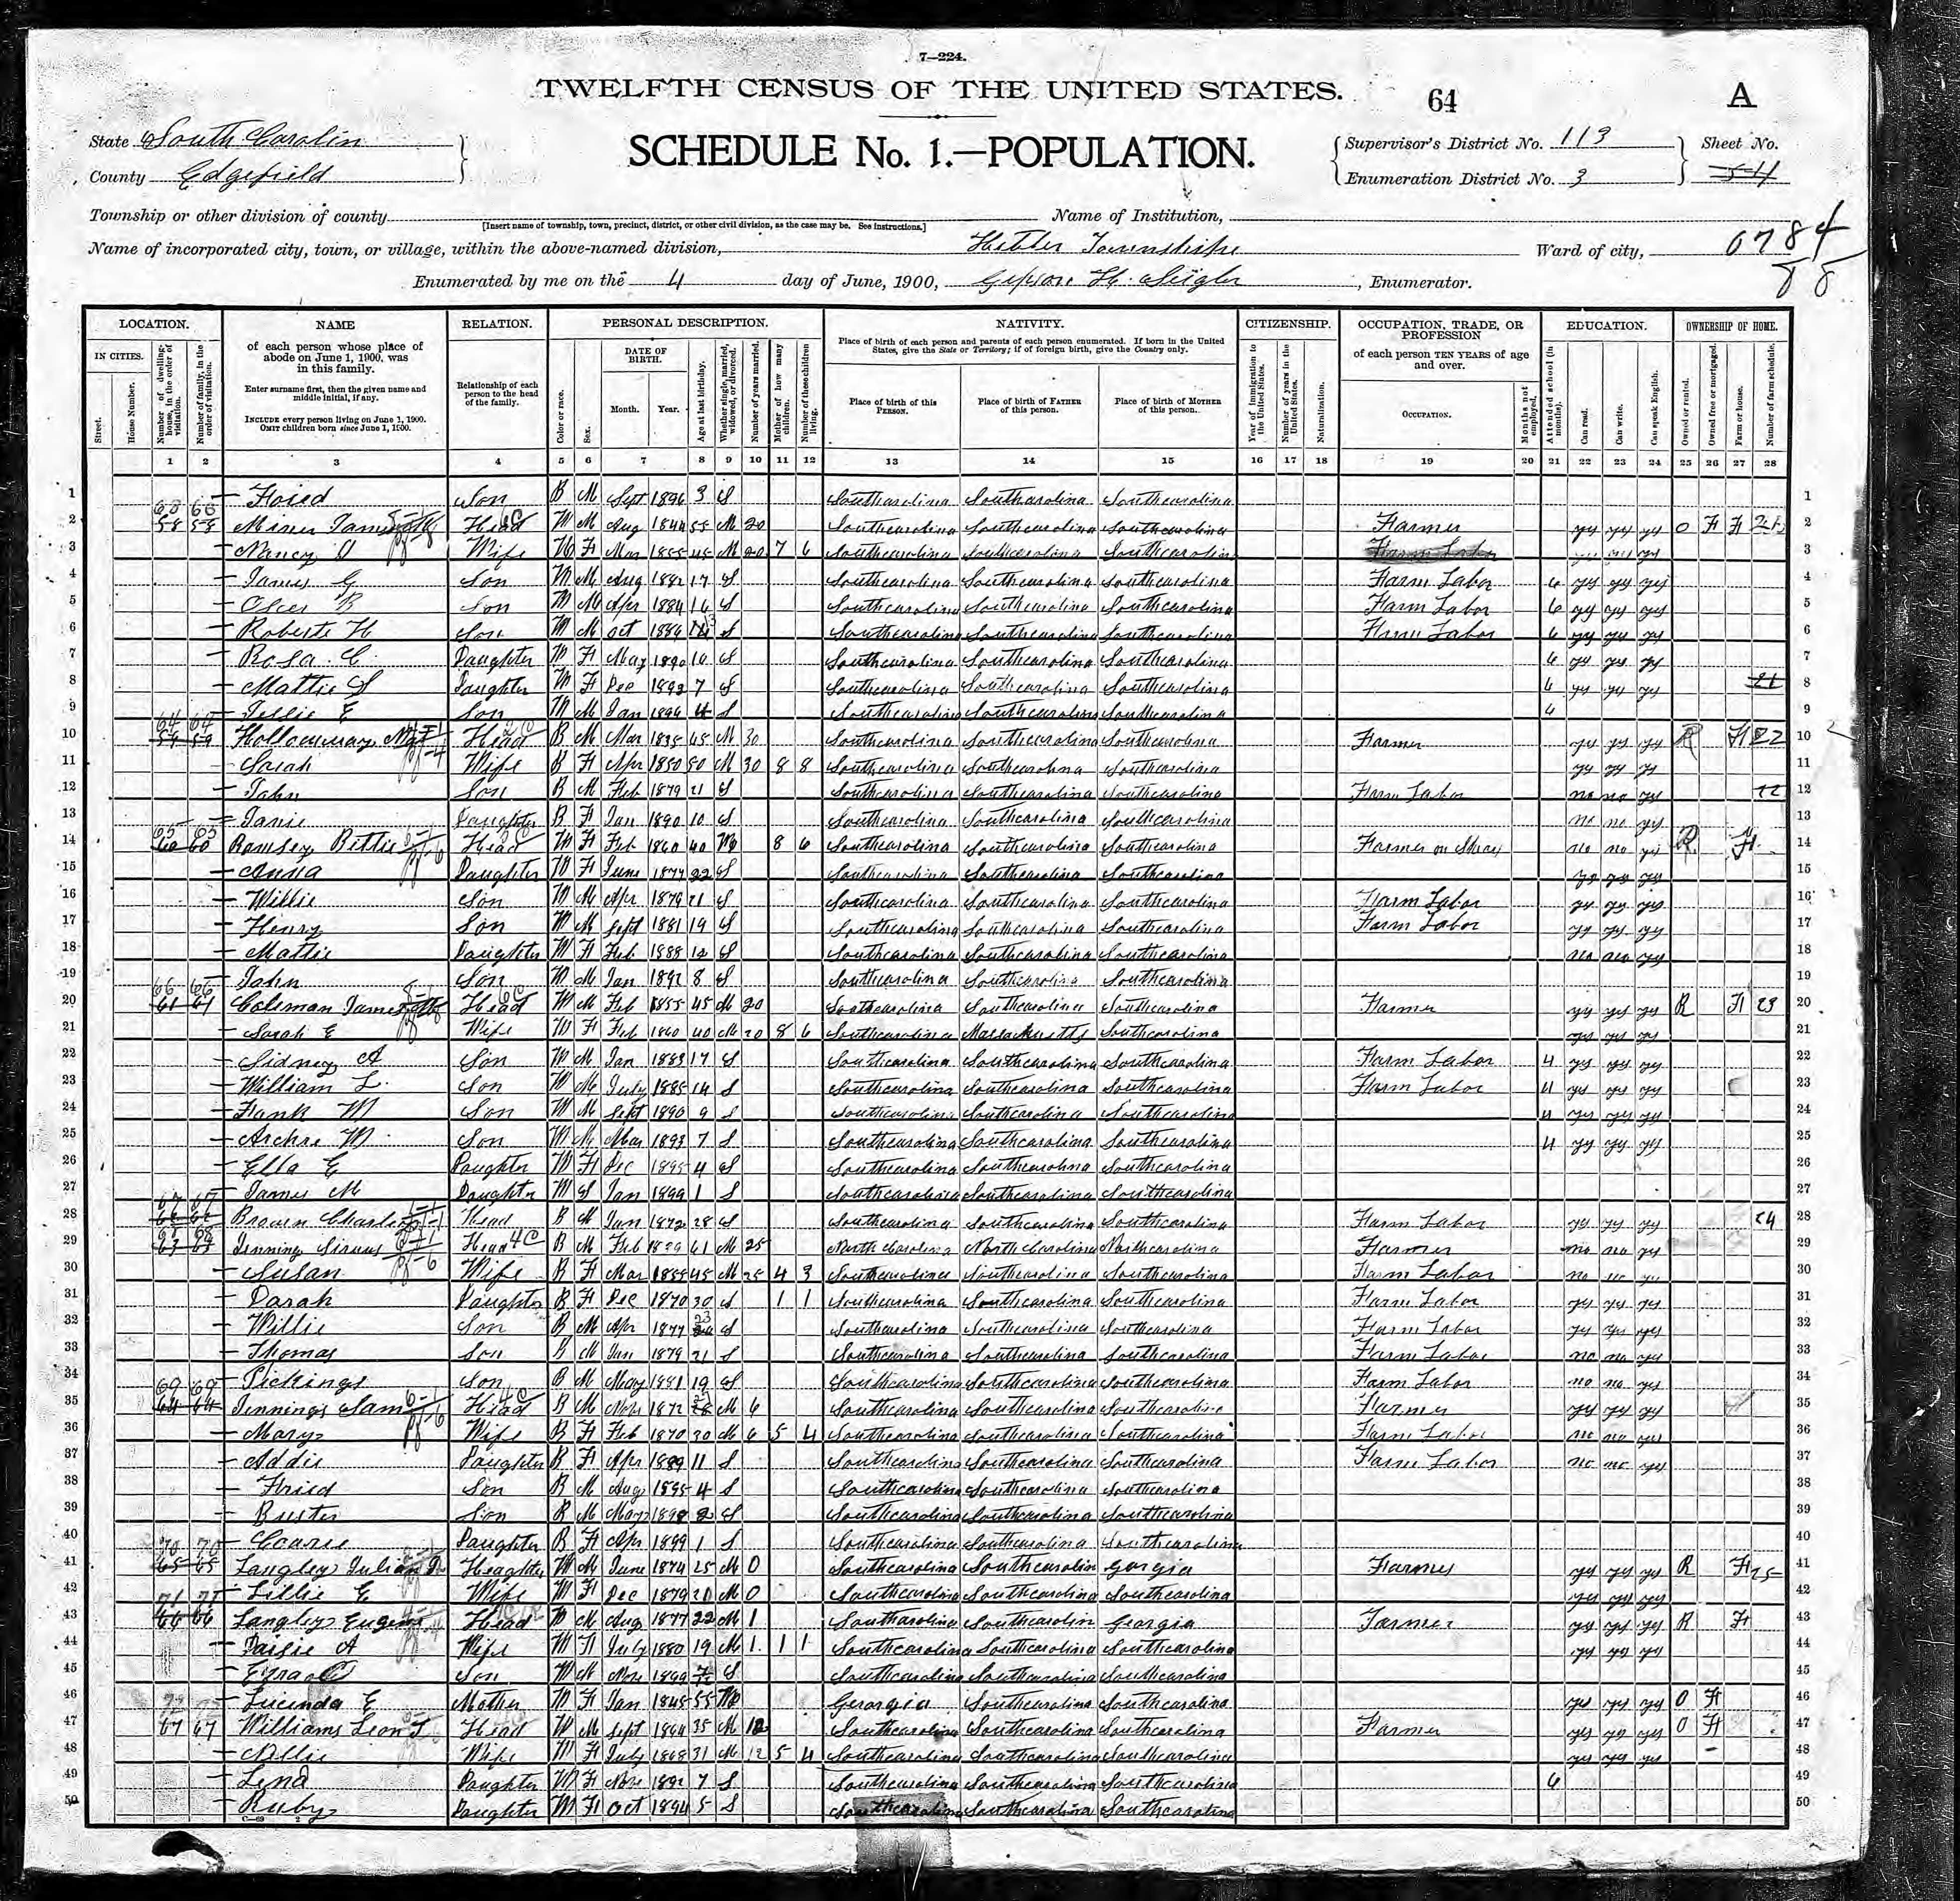 7—224.
TWELFTH CENSUS OF THE UNITED STATES.
64
A
State South Carolin
County Edgefield
SCHEDULE No. 1.—POPULATION.
Supervisor's District No. 113
Enumeration District No. 3
Sheet No.
Township or other division of county
[Insert name of township, town, precinct, district, or other civil division, as the case may be. See instructions.]
Name of Institution,
Name of incorporated city, town, or village, within the above-named division, Township
Ward of city,
Enumerated by me on the 4 day of June, 1900, H. Seigler, Enumerator.
LOCATION. NAME RELATION. PERSONAL DESCRIPTION. NATIVITY. CITIZENSHIP. OCCUPATION, TRADE, OR PROFESSION EDUCATION. OWNERSHIP OF HOME.
IN CITIES.
Street.
House Number.
Number of dwelling-house, in the order of visitation.
Number of family, in the order of visitation.
of each person whose place of abode on June 1, 1900, was in this family.
Enter surname first, then the given name and middle initial, if any.
INCLUDE every person living on June 1, 1900.
OMIT children born since June 1, 1900.
Relationship of each person to the head of the family.
Color or race.
Sex.
DATE OF BIRTH.
Month. Year.
Age at last birthday.
Whether single, married, widowed, or divorced.
Number of years married.
Mother of how many children.
Number of these children living.
Place of birth of each person and parents of each person enumerated. If born in the United States, give the State or Territory; if of foreign birth, give the Country only.
Place of birth of this PERSON.
Place of birth of FATHER of this person.
Place of birth of MOTHER of this person.
Year of immigration to the United States.
Number of years in the United States.
Naturalization.
of each person TEN YEARS of age and over.
OCCUPATION.
Months not employed.
Attended school (in months).
Can read.
Can write.
Can speak English.
Owned or rented.
Owned free or mortgaged.
Farm or house.
Number of farm schedule.
1 2 3 4 5 6 7 8 9 10 11 12 13 14 15 16 17 18 19 20 21 22 23 24 25 26 27 28
1 Son B M Sept 1896 3 S Southcarolina Southcarolina Southcarolina 1
2 58 58 Head W M Aug 1844 55 M 20 Southcarolina Southcarolina Southcarolina Farmer yes yes yes O F F 2
3 Nancy Wife W F Mar 1855 45 M 20 7 6 Southcarolina Southcarolina Southcarolina Farm Labor yes yes yes 3
4 James G Son W M Aug 1882 17 S Southcarolina Southcarolina Southcarolina Farm Labor 6 yes yes yes 4
5 B Son W M Apr 1884 16 S Southcarolina Southcarolina Southcarolina Farm Labor 6 yes yes yes 5
6 Roberts H Son W M Oct 1886 13 S Southcarolina Southcarolina Southcarolina Farm Labor 6 yes yes yes 6
7 Rosa C Daughter W F May 1890 10 S Southcarolina Southcarolina Southcarolina 6 yes yes yes 7
8 Mattie S Daughter W F Dec 1892 7 S Southcarolina Southcarolina Southcarolina 6 yes yes yes 21 8
9 E Son W M Jan 1896 4 S Southcarolina Southcarolina Southcarolina 6 9
10 59 59 Holloway Head B M Mar 45 M 30 Southcarolina Southcarolina Southcarolina Farmer yes yes yes R F 22 10
11 Sarah Wife B F Apr 1850 50 M 30 8 8 Southcarolina Southcarolina Southcarolina yes yes yes 11
12 John Son B M Feb 1879 21 S Southcarolina Southcarolina Southcarolina Farm Labor no no yes 22 12
13 Janie Daughter B F Jan 1890 10 S Southcarolina Southcarolina Southcarolina no no yes 13
14 60 60 Ramsey Bettie Head W F Feb 1860 40 Wd 8 6 Southcarolina Southcarolina Southcarolina Farmer on Shay no no yes R F 14
15 Anna Daughter W F June 1877 22 S Southcarolina Southcarolina Southcarolina yes yes yes 15
16 Willie Son W M Apr 1879 21 S Southcarolina Southcarolina Southcarolina Farm Labor yes yes yes 16
17 Henry Son W M Sept 1881 19 S Southcarolina Southcarolina Southcarolina Farm Labor yes yes yes 17
18 Mattie Daughter W F Feb 1888 12 S Southcarolina Southcarolina Southcarolina no no yes 18
19 John Son W M Jan 1892 8 S Southcarolina Southcarolina Southcarolina 19
20 61 61 Coleman James Head W M Feb 1855 45 M 20 Southcarolina Southcarolina Southcarolina Farmer yes yes yes R F 23 20
21 Sarah E Wife W F Feb 1860 40 M 20 8 6 Southcarolina Massachusetts Southcarolina yes yes yes 21
22 Sidney A Son W M Jan 1883 17 S Southcarolina Southcarolina Southcarolina Farm Labor 4 yes yes yes 22
23 William L. Son W M July 1885 14 S Southcarolina Southcarolina Southcarolina Farm Labor 4 yes yes yes 23
24 Frank M Son W M Sept 1890 9 S Southcarolina Southcarolina Southcarolina 4 yes yes yes 24
25 Archie M Son W M Mar 1893 7 S Southcarolina Southcarolina Southcarolina 4 yes yes yes 25
26 Ella E Daughter W F Dec 1895 4 S Southcarolina Southcarolina Southcarolina 26
27 James M Daughter W Jan 1899 1 S Southcarolina Southcarolina Southcarolina 27
28 62 62 Brown Charlie Head B M Jan 1872 28 S Southcarolina Southcarolina Southcarolina Farm Labor yes yes yes 24 28
29 63 63 Jenning Head B M Feb 61 M 25 North Carolina North Carolina Northcarolina Farmer no no yes 29
30 Susan Wife B F Mar 1855 45 M 25 4 3 Southcarolina Southcarolina Southcarolina Farm Labor no no yes 30
31 Daughter B F Dec 1870 30 S 1 1 Southcarolina Southcarolina Southcarolina Farm Labor yes yes yes 31
32 Willie Son B M Apr 1877 23 S Southcarolina Southcarolina Southcarolina Farm Labor yes yes yes 32
33 Thomas Son B M Jan 1879 21 S Southcarolina Southcarolina Southcarolina Farm Labor no no yes 33
34 Pickings Son B M May 1881 19 S Southcarolina Southcarolina Southcarolina Farm Labor no no yes 34
35 64 64 Jennings Sam Head B M 1872 M 6 Southcarolina Southcarolina Southcarolina Farmer yes yes yes 35
36 Mary Wife B F Feb 1870 30 M 6 5 4 Southcarolina Southcarolina Southcarolina Farm Labor no no yes 36
37 Addie Daughter B F Apr 1889 11 S Southcarolina Southcarolina Southcarolina Farm Labor no no yes 37
38 Son B M Aug 1895 4 S Southcarolina Southcarolina Southcarolina 38
39 Buster Son B M May 1898 2 S Southcarolina Southcarolina Southcarolina 39
40 Daughter B F Apr 1899 1 S Southcarolina Southcarolina Southcarolina 40
41 65 65 Langley Julian Head W M June 1874 25 M 0 Southcarolina Southcarolin Georgia Farmer yes yes yes R F 25 41
42 Lillie E Wife W F Dec 1879 M 0 Southcarolina Southcarolina Southcarolina yes yes yes 42
43 66 66 Langley Eugene Head W M Aug 1877 22 M 1 Southcarolina Southcarolin Georgia Farmer yes yes yes R F 43
44 Daisie A Wife W F July 1880 19 M 1 1 1 Southcarolina Southcarolina Southcarolina yes yes yes 44
45 Ezra C Son W M Nov 1899 7/12 S Southcarolina Southcarolina Southcarolina 45
46 Lucinda E Mother W F Jan 1845 55 Wd Georgia Southcarolina Southcarolina yes yes yes O F 46
47 67 67 Williams Leon T Head W M Sept 1864 35 M 12 Southcarolina Southcarolina Southcarolina Farmer yes yes yes O F 47
48 Nellie Wife W F July 1868 31 M 12 5 4 Southcarolina Southcarolina Southcarolina yes yes yes 48
49 Lena Daughter W F Nov 1892 7 S Southcarolina Southcarolina Southcarolina 6 49
50 Ruby Daughter W F Oct 1894 5 S Southcarolina Southcarolina Southcarolina 50